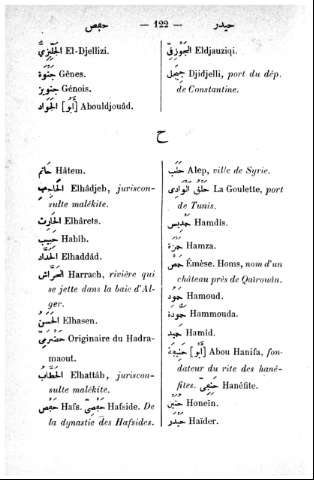 حفص — 122 — حيدر
الجلّيزيّ El-Djellizi.
جنوة Gênes.
جنويز Génois.
[أبو] الجواد Abouldjouâd.
الجوزقيّ Eldjauziqi.
جيجل Djidjelli, port du dép.
de Constantine.
ح
حاتم Hâtem.
الحاجب Elhâdjeb, juriscon-
sulte malékite.
الحارث Elhârets.
حبيب Habîb.
الحدّاد Elhaddâd.
الحرّاش Harrach, rivière qui
se jette dans la baie d'Al-
ger.
الحسن Elhasen.
حضرميّ Originaire du Hadra-
maout.
الحطّاب Elhattâb, juriscon-
sulte malékite.
حفص Hafs. حفصيّ Hafside. De
la dynastie des Hafsides.
حلب Alep, ville de Syrie.
حلق الوادي La Goulette, port
de Tunis.
حمديس Hamdîs.
حمزة Hamza.
حمص Émèse. Homs, nom d'un
château près de Qaïrouân.
حمود Hamoud.
حمودة Hammouda.
حميد Hamîd.
[أبو] حنيفة Abou Hanîfa, fon-
dateur du rite des hané-
fites. حنفيّ Hanéfite.
حنين Honeïn.
حيدر Haïder.